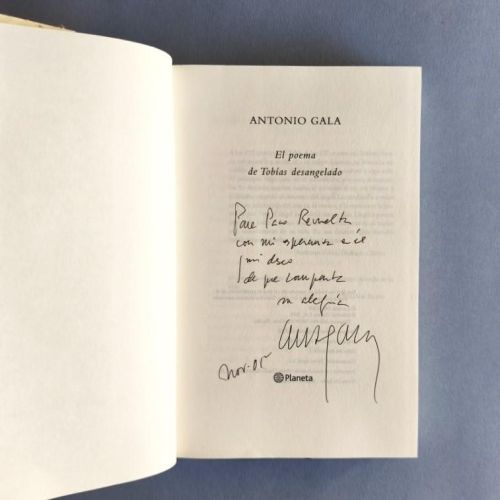 ANTONIO GALA
El poema
de Tobías desangelado
Para Paco Revuelta
con mi esperanza
mi deseo
de que comparta
su alegría
nov-05
Planeta